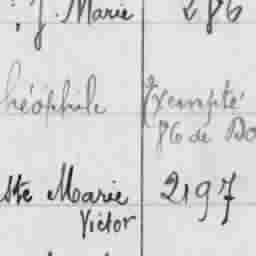 J. Marie 286
héophile Exempté
86 de Do
tte Marie 2197
Victor